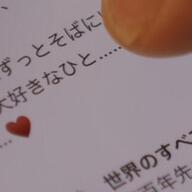 ずっとそばに
大好きなひと……
……♥
世界のすべ
百年先